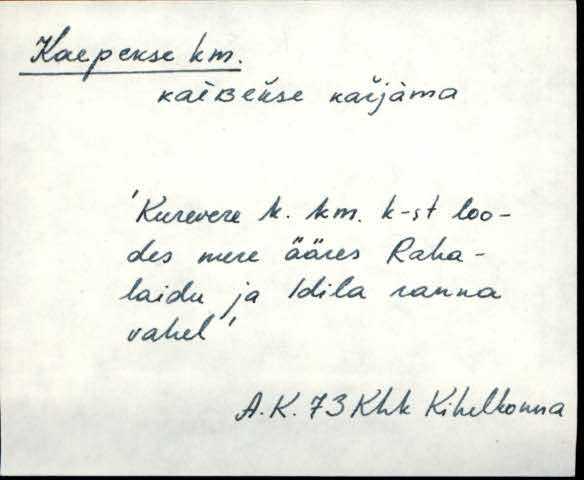 Kaepekse km.
kaèBèkse kaŕjàma
'Kurevere k. km. k-st loo-
des mere ääres Raha-
laidu ja Idila ranna
vahel'
A.K. 73 Khk Kihelkonna